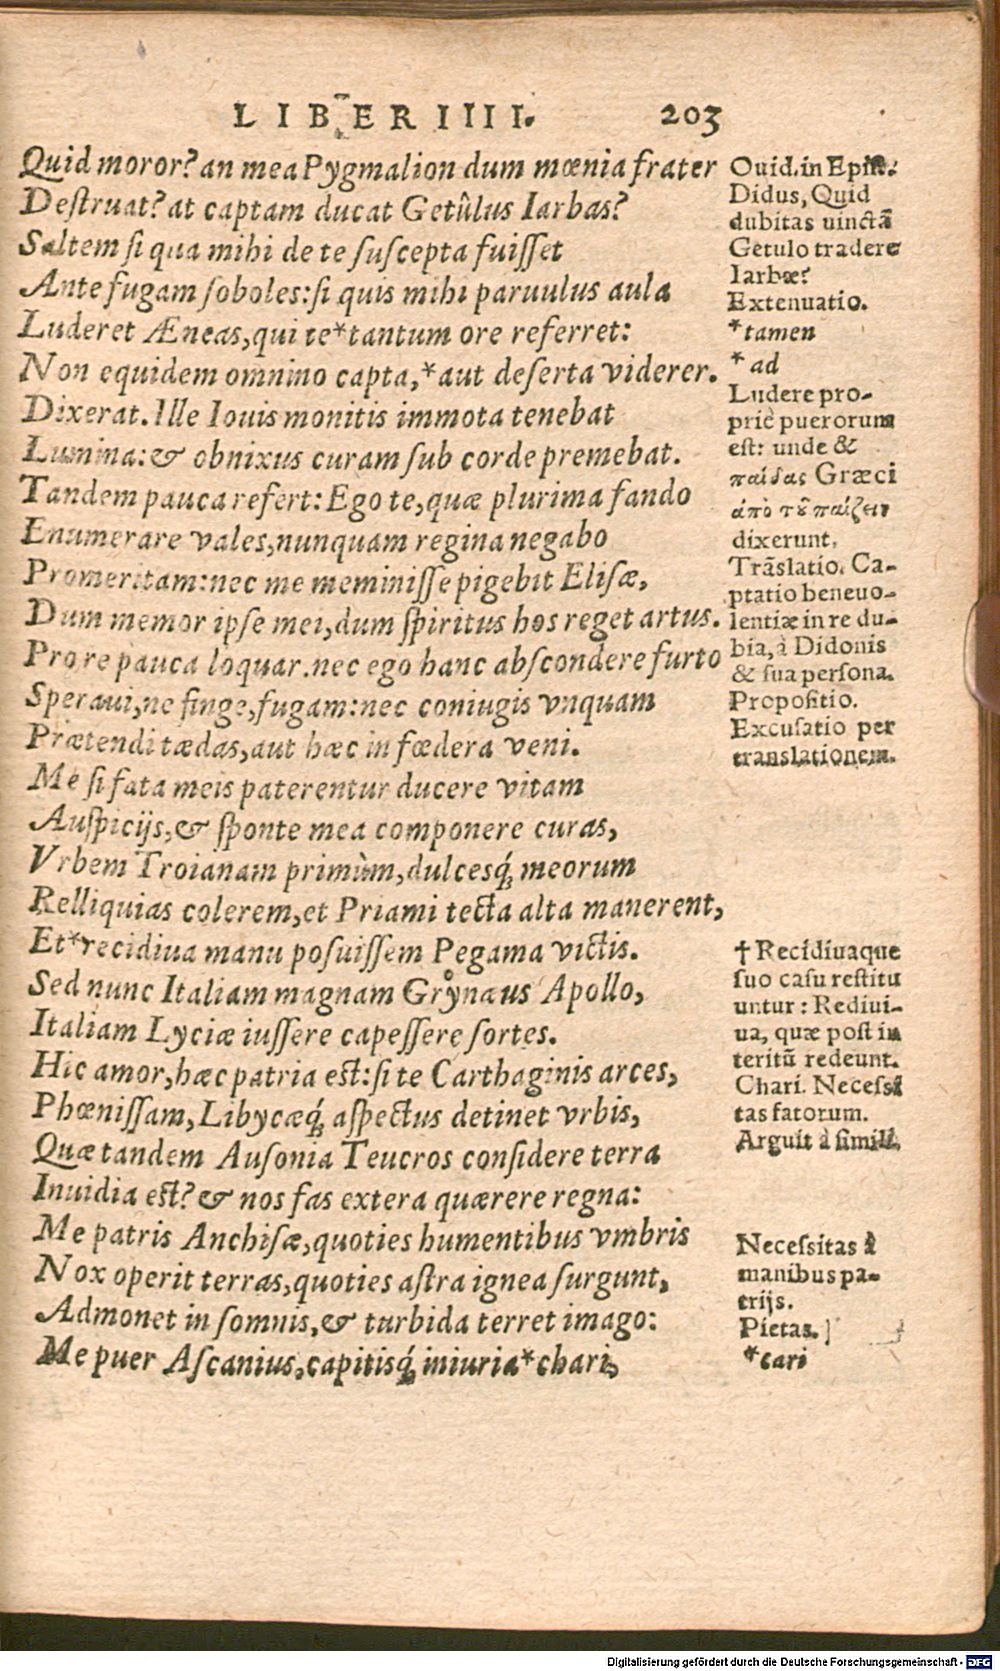 LIBER IIII. 203
Quid moror? an mea Pygmalion dum mœnia frater
Deſtruat? at captam ducat Getûlus Iarbas?
Saltem ſi qua mihi de te ſuſcepta fuiſſet
Ante fugam ſoboles: ſi quis mihi paruulus aula
Luderet Æneas, qui te*tantum ore referret:
Non equidem omnino capta,*aut deſerta viderer.
Dixerat. Ille Iouis monitis immota tenebat
Lumina: & obnixus curam ſub corde premebat.
Tandem pauca refert: Ego te, quæ plurima fando
Enumerare vales, nunquam regina negabo
Promeritam: nec me meminiſſe pigebit Eliſæ,
Dum memor ipſe mei, dum ſpiritus hos reget artus.
Pro re pauca loquar. nec ego hanc abſcondere furto
Speraui, ne finge, fugam: nec coniugis vnquam
Prætendi tædas, aut hæc in fœdera veni.
Me ſi fata meis paterentur ducere vitam
Auſpicijs, & ſponte mea componere curas,
Vrbem Troianam primùm, dulcesq́; meorum
Relliquias colerem, et Priami tecta alta manerent,
Et*recidiua manu poſuiſſem Pegama victis.
Sed nunc Italiam magnam Grynæus Apollo,
Italiam Lyciæ iuſſere capeſſere ſortes.
Hic amor, hæc patria eſt: ſi te Carthaginis arces,
Phœniſſam, Libycæq́; aſpectus detinet vrbis,
Quæ tandem Auſonia Teucros conſidere terra
Inuidia eſt? & nos fas extera quærere regna:
Me patris Anchiſæ, quoties humentibus vmbris
Nox operit terras, quoties aſtra ignea ſurgunt,
Admonet in ſomnis, & turbida terret imago:
Me puer Aſcanius, capitisq́; iniuria*chari,
Ouid. in Epiſt.
Didus, Quid
dubitas uinctã
Getulo tradere
Iarbæ?
Extenuatio.
*tamen
*ad
Ludere pro-
priè puerorum
eſt: unde &
παίδας Græci
ἀπὸ τοῦ παίζειν
dixerunt.
Trãslatio. Ca-
ptatio beneuo-
lentiæ in re du-
bia, à Didonis
& ſua perſona.
Propoſitio.
Excuſatio per
translationem.
† Recidiuaque
ſuo caſu reſtitu
untur: Rediui-
ua, quæ poſt in
teritũ redeunt.
Chari. Neceſsi
tas fatorum.
Arguit à ſimili.
Neceſsitas à
manibus pa-
trijs.
Pietas.
*cari
Digitalisierung gefördert durch die Deutsche Forschungsgemeinschaft - DFG